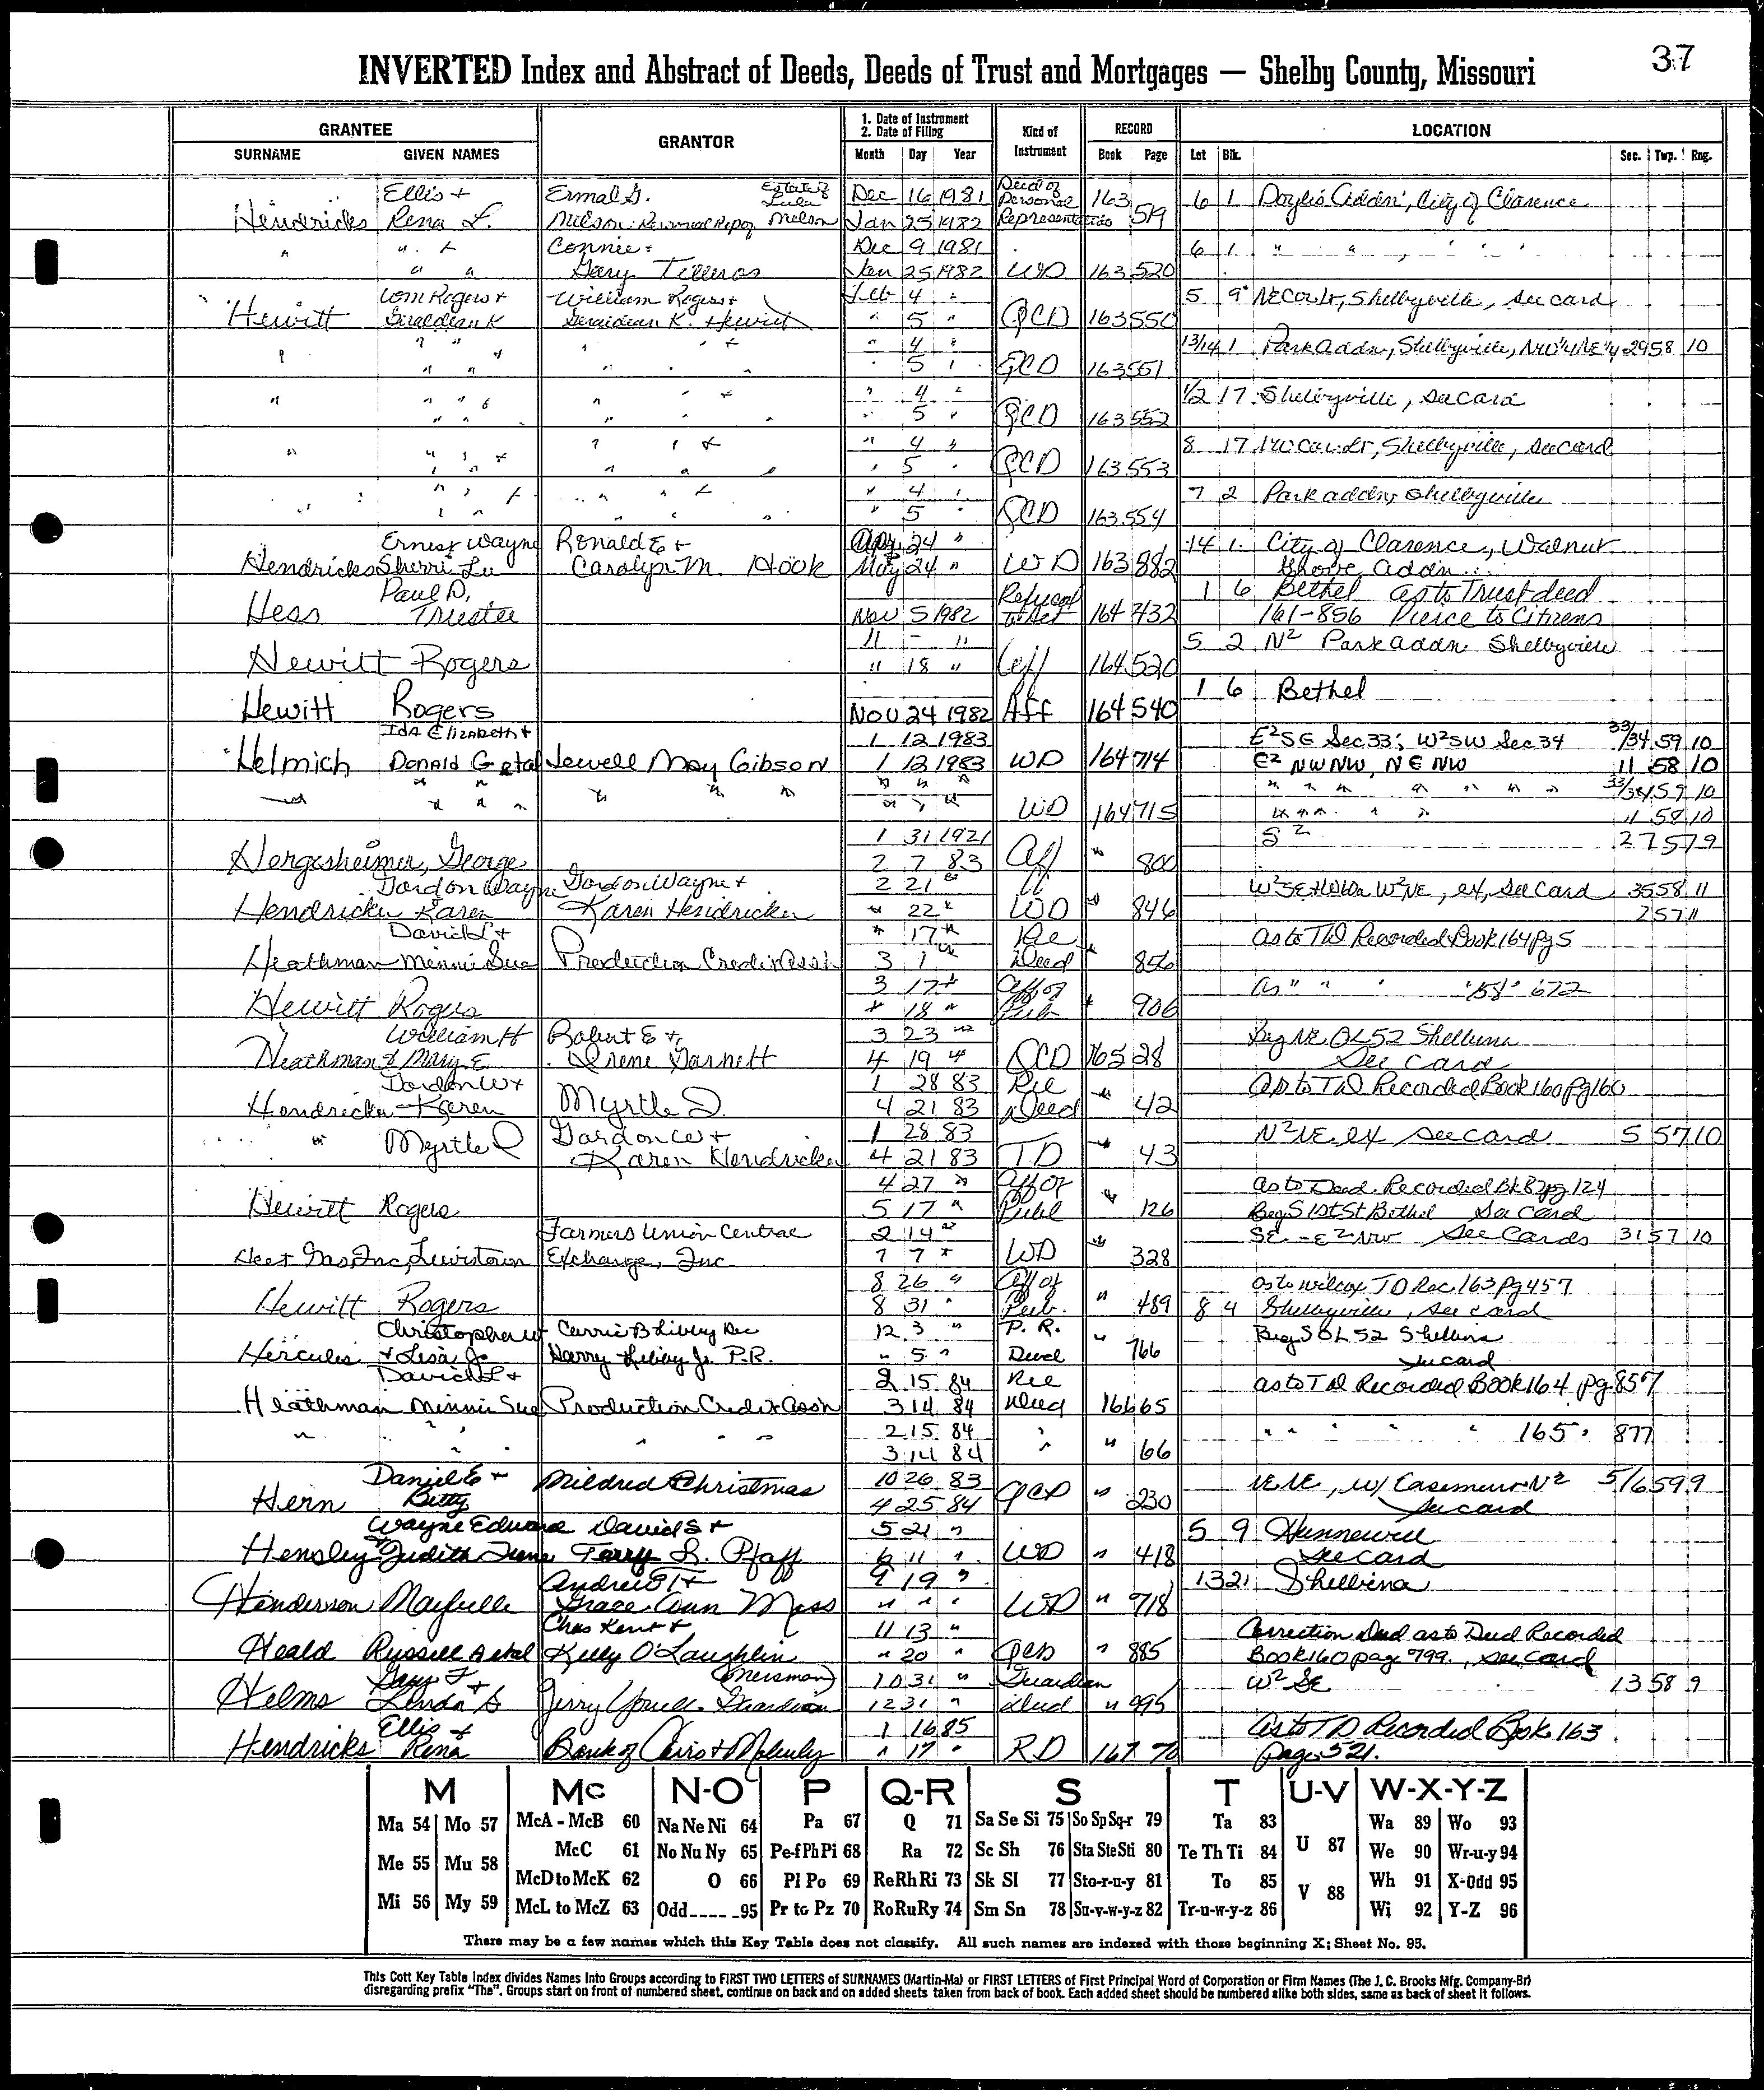 37
INVERTED Index and Abstract of Deeds, Deeds of Trust and Mortgages — Shelby County, Missouri
GRANTEE
SURNAME GIVEN NAMES
GRANTOR
1. Date of Instrument
2. Date of Filing
Month Day Year
Kind of
Instrument
RECORD
Book Page
LOCATION
Lot Blk. Sec. Twp. Rng.
Ellis + Ermal G. Estate of Lula Dec 16 1981 Deed of Personal 163 6 1 Addn', City of Clarence
Hendricks Rena L. Nelson Nelson Jan 25 1982 Representative 519
" " + Connie + Dec 9 1981 6 1 " "
" " Gary Jan 25 1982 WD 163 520
Wm Rogers + William Rogers + Feb 4 " 5 9 NE Cor Lt, Shelbyville, See card
Hewitt Geraldean K Geraldean K. Hewitt " 5 " QCD 163 550
" " " " + " 4 " 13/14 1 Park Addn, Shelbyville, NW¼NE¼ 29 58 10
" " " " " 5 " QCD 163 551
" " " " " + " 4 " 1/2 17 Shelbyville, See card
" " " " " 5 " QCD 163 552
" " " " " + " 4 " 8 17 NW Cor Lt, Shelbyville, See card
" " " " " 5 " QCD 163 553
" " " + " " + " 4 " 7 2 Park addn, Shelbyville
" " " " " 5 " QCD 163 554
Ernest Wayne Ronald E + Apr 24 " 14 1 City of Clarence, Walnut
Hendricks Sherri Lu Carolyn M. Hook May 24 " WD 163 882 Grove Addn
Paul D. Refusal 1 6 Bethel as to Trust deed
Hess Trustee Nov 5 1982 to Act 164 432 161-856 Pierce to Citizens
11 - " 5 2 N² Park addn Shelbyville
Hewitt Rogers " 18 " Aff 164 520
1 6 Bethel
Hewitt Rogers Nov 24 1982 Aff 164 540
Ida Elizabeth + 1 12 1983 E²SE Sec 33; W²SW Sec 34 33/34 59 10
Helmich Donald G etal Jewell May Gibson 1 12 1983 WD 164 714 E² NWNW, NE NW 11 58 10
" " " " " " " " " " " " " " " 33/34 59 10
" " " " " " WD 164 715 " " " " " 11 58 10
1 31 1921 S² 27 57 9
Hergesheimer, George 2 7 83 Aff " 800
Gordon Wayne Gordon Wayne + 2 21 " W²SE W²NE, ex, See Card 35 58 11
Hendricks Karen Karen Hendricks " 22 " WD " 846 2 57 11
David L + " 17 " Rel as to TD Recorded Book 164 Pg 5
Heathman Minnie Sue Production Credit Assn 3 1 " Deed " 856
3 17 " Aff of as " " " 158 " 672
Hewitt Rogers " 18 " Pub " 906
William H Robert E + 3 23 " Beg NE OL 52 Shelbina
Heathman + Mary E. Irene Garnett 4 19 " QCD 165 28 See Card
Gordon W + 1 28 83 Rel As to TD Recorded Book 160 Pg 160
Hendricks Karen Myrtle D. 4 21 83 Deed " 42
" Myrtle D Gordon W + 1 28 83 N²NE. ex See card 5 57 10
Karen Hendricks 4 21 83 TD " 43
4 27 " Aff of As to Deed Recorded Bk 82 pg 124
Hewitt Rogers 5 17 " Publ " 126 Beg S 1st St Bethel See Card
Farmers Union Central 2 14 " SE - E² NW See Cards 31 57 10
Heet Gas Inc, Lewistown Exchange, Inc 7 7 " WD " 328
8 26 " Aff of as to Wilcox TD Rec. 163 Pg 457
Hewitt Rogers 8 31 " Pub. " 489 8 4 Shelbyville, See card
Christopher W Carrie B Libby Dec 12 3 " P. R. Beg S OL 52 Shelbina
Hercules + Lisa Jo Harry Libby Jr. P.R. " 5 " Deed " 766 See card
David L + 2 15 84 Rel as to TD Recorded Book 164 Pg 857
Heathman Minnie Sue Production Credit Ass'n 3 14 84 Deed 166 65
" " " " " " 2 15 84 " " " " " " 165 " 877
" 3 14 84 " " 66
Daniel E + Mildred Christmas 10 26 83 NE NE, w/ Easement N² 5/6 59 9
Hern Betty 4 25 84 QCD " 230 See card
Wayne Edward David S + 5 21 " 5 9 Hunnewell
Hensley + Judith Irene Terry L. Pfaff 6 11 " WD " 418 See card
Andrew T + 9 19 " 13 21 Shelbina
Henderson Maybelle Grace Ann Moss " " " WD " 718
Chas Kent + 11 13 " Correction Deed as to Deed Recorded
Heald Russell A etal Kelly O'Laughlin " 20 " QCD " 885 Book 160 page 799., See card
Gary F + 10 31 " Guardian W² SE 13 58 9
Helms Linda S Jerry Guardian 12 31 " deed " 995
Ellis + 1 16 85 As to TD Recorded Book 163
Hendricks Rena Bank of " 17 " RD 167 70 page 521.
M Mc N-O P Q-R S T U-V W-X-Y-Z
Ma 54 Mo 57 McA - McB 60 Na Ne Ni 64 Pa 67 Q 71 Sa Se Si 75 So Sp Sq-r 79 Ta 83 Wa 89 Wo 93
McC 61 No Nu Ny 65 Pe-f Ph Pi 68 Ra 72 Sc Sh 76 Sta Ste Sti 80 Te Th Ti 84 U 87 We 90 Wr-u-y 94
Me 55 Mu 58 McD to McK 62 O 66 Pl Po 69 Re Rh Ri 73 Sk Sl 77 Sto-r-u-y 81 To 85 V 88 Wh 91 X-Odd 95
Mi 56 My 59 McL to McZ 63 Odd_____95 Pr to Pz 70 Ro Ru Ry 74 Sm Sn 78 Su-v-w-y-z 82 Tr-u-w-y-z 86 Wi 92 Y-Z 96
There may be a few names which this Key Table does not classify. All such names are indexed with those beginning X; Sheet No. 95.
This Cott Key Table Index divides Names Into Groups according to FIRST TWO LETTERS of SURNAMES (Martin-Ma) or FIRST LETTERS of First Principal Word of Corporation or Firm Names (The J. C. Brooks Mfg. Company-Br)
disregarding prefix "The". Groups start on front of numbered sheet, continue on back and on added sheets taken from back of book. Each added sheet should be numbered alike both sides, same as back of sheet it follows.